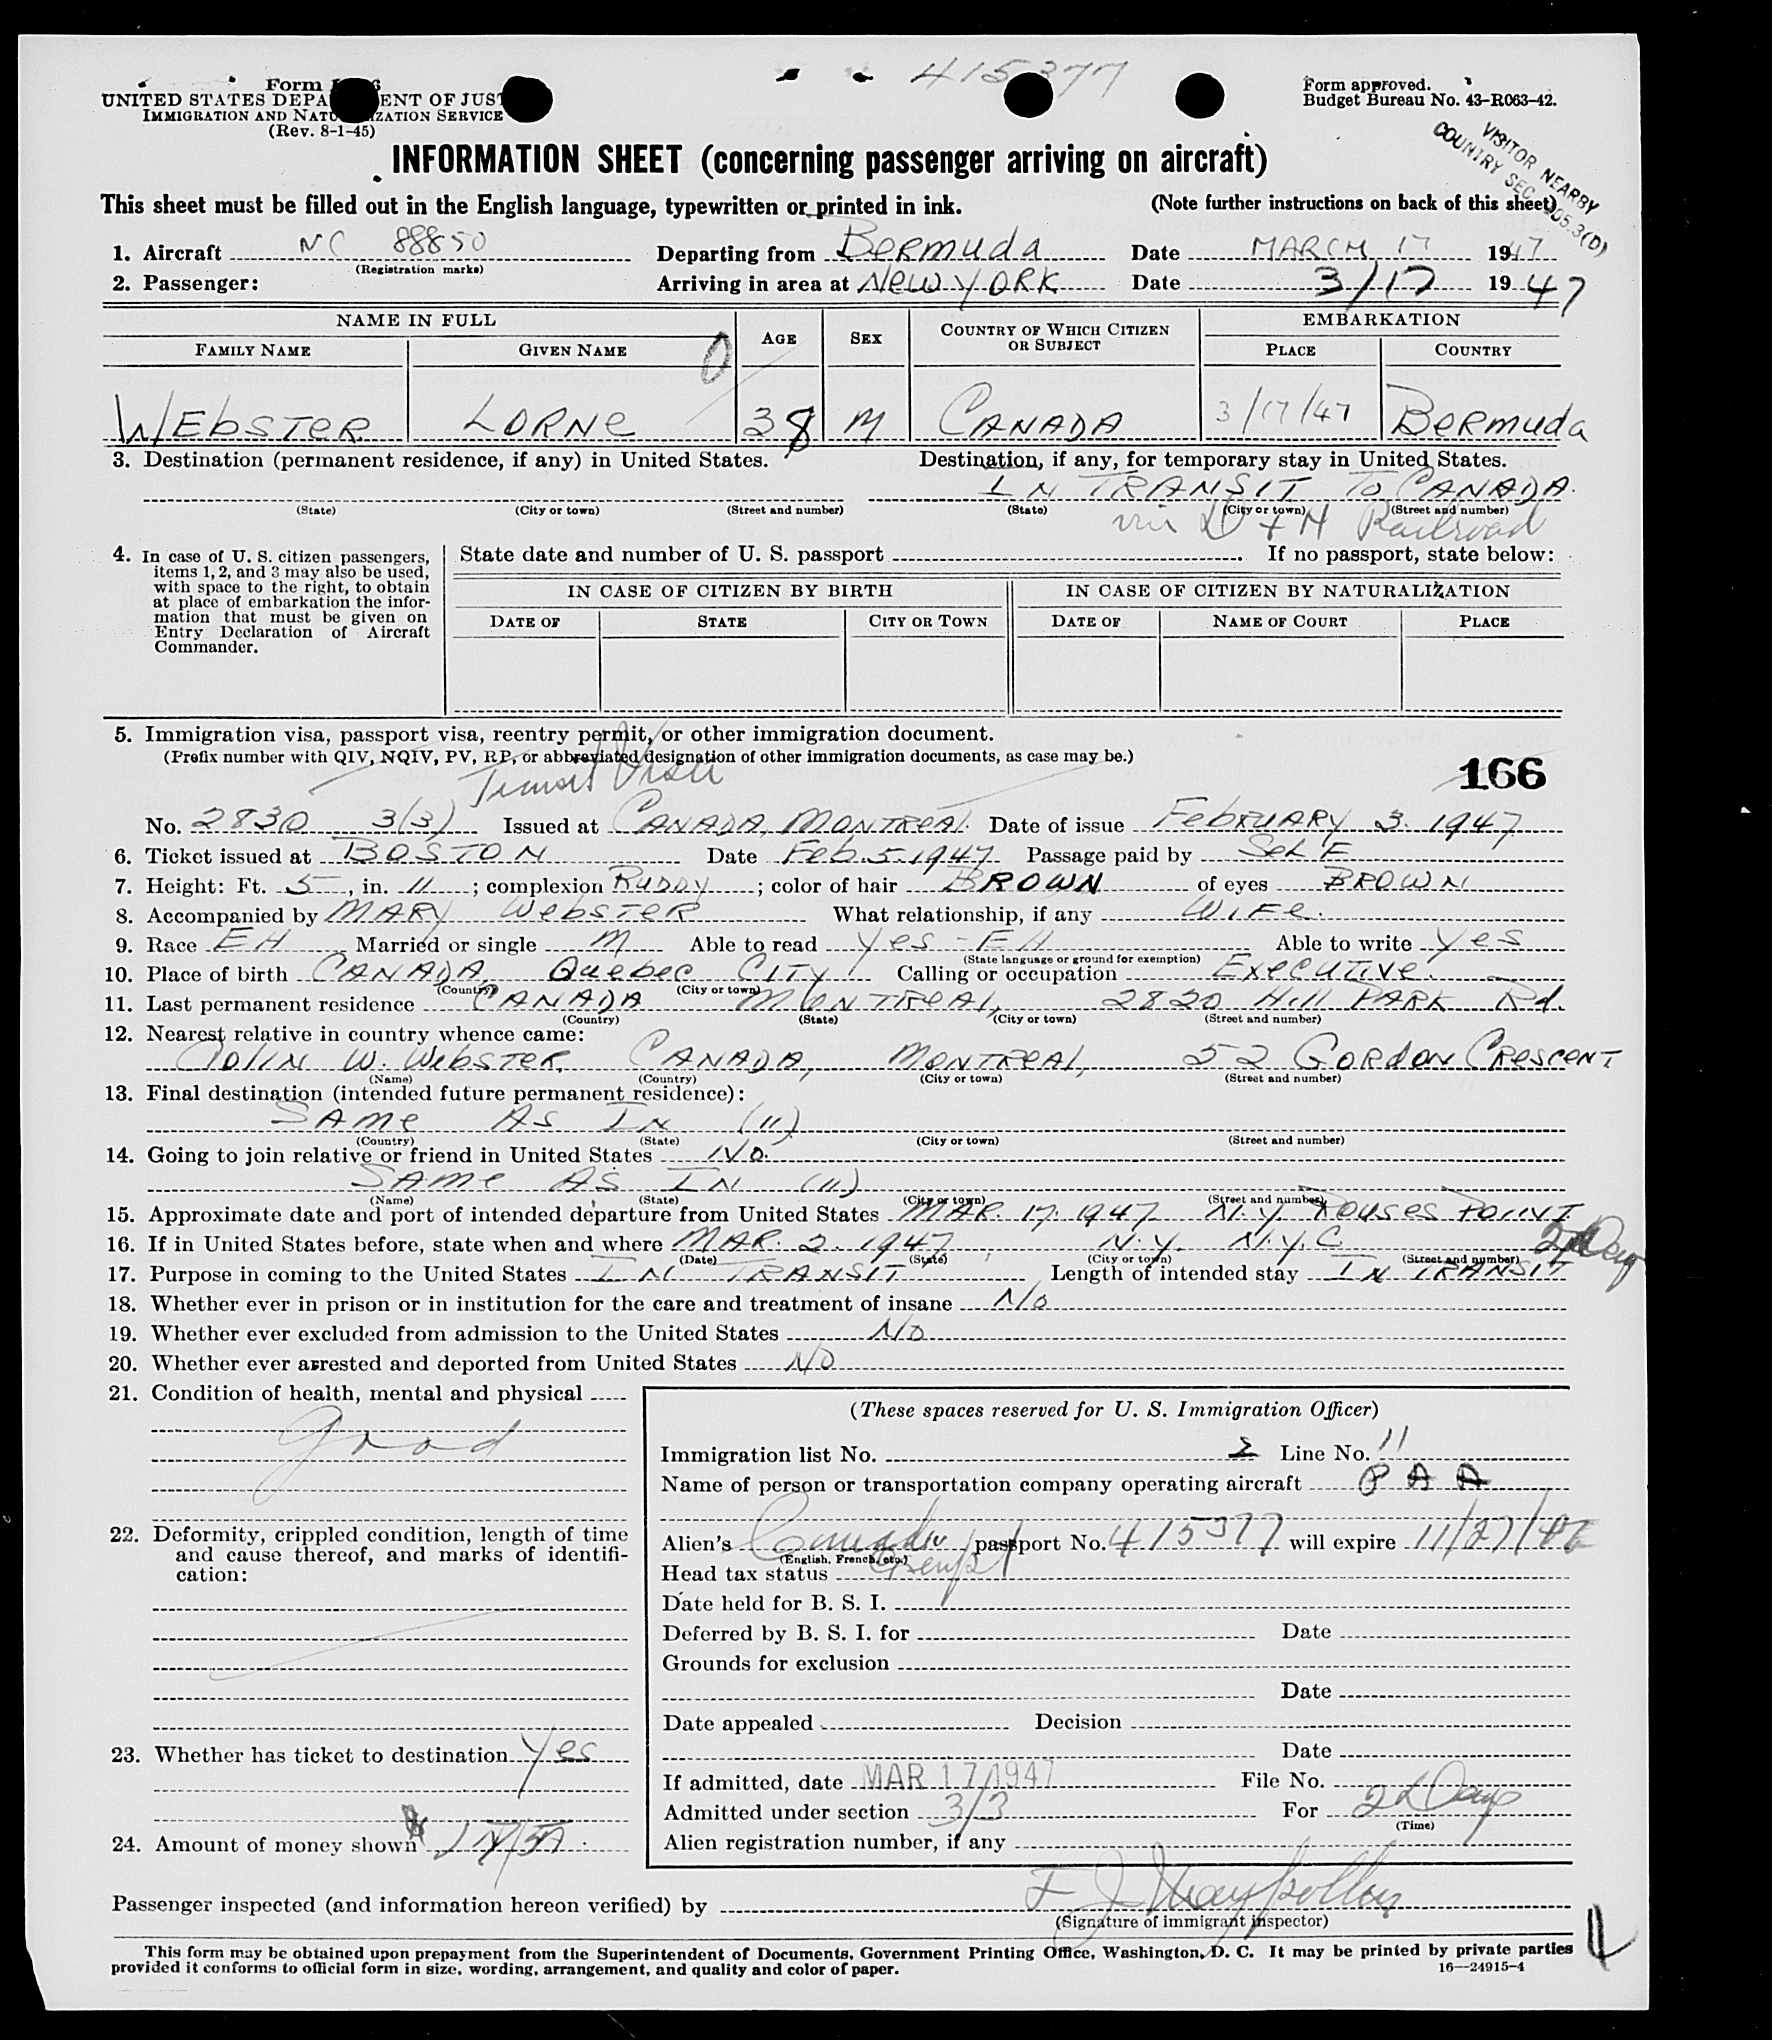 415377
Form
UNITED STATES DEPA ENT OF JUS
IMMIGRATION AND NATU IZATION SERVICE
(Rev. 8-1-45)
Form approved.
Budget Bureau No. 43-R063-42.
VISITOR NEARBY
COUNTRY SEC. 105.3(D)
INFORMATION SHEET (concerning passenger arriving on aircraft)
This sheet must be filled out in the English language, typewritten or printed in ink. (Note further instructions on back of this sheet)
1. Aircraft NC 88850 Departing from Bermuda Date MARCH 17 1947
(Registration marks)
2. Passenger: Arriving in area at New YORK Date 3/17 1947
NAME IN FULL AGE SEX COUNTRY OF WHICH CITIZEN OR SUBJECT EMBARKATION
FAMILY NAME GIVEN NAME PLACE COUNTRY
WEbSTER LORNe 38 M CANADA 3/17/47 BeRmuda
3. Destination (permanent residence, if any) in United States. Destination, if any, for temporary stay in United States.
IN TRANSIT TO CANADA.
(State) (City or town) (Street and number) (State) (City or town) (Street and number)
via D + H Railroad
4. In case of U. S. citizen passengers, items 1, 2, and 3 may also be used, with space to the right, to obtain at place of embarkation the information that must be given on Entry Declaration of Aircraft Commander.
State date and number of U. S. passport If no passport, state below:
IN CASE OF CITIZEN BY BIRTH IN CASE OF CITIZEN BY NATURALIZATION
DATE OF STATE CITY OR TOWN DATE OF NAME OF COURT PLACE
5. Immigration visa, passport visa, reentry permit, or other immigration document.
(Prefix number with QIV, NQIV, PV, RP, or abbreviated designation of other immigration documents, as case may be.)
Transit Visa
166
No. 2830 3(3) Issued at CANADA, MONTReAL. Date of issue FebRUARY 3. 1947
6. Ticket issued at BOSTON Date Feb. 5. 1947 Passage paid by SeLF
7. Height: Ft. 5, in. 11; complexion RuDDy; color of hair BROWN of eyes BROWN
8. Accompanied by MARY WebSTeR What relationship, if any WIFe.
9. Race EH Married or single M Able to read yes - EH Able to write yes
(State language or ground for exemption)
10. Place of birth CANADA, Quebec CITY Calling or occupation ExeCUTIVe.
(Country) (City or town)
11. Last permanent residence CANADA MONTReAL, 2820 Hill PARK Rd.
(Country) (State) (City or town) (Street and number)
12. Nearest relative in country whence came:
COlIN W. WebSTeR, CANADA, MONTReAL, 52 GORdoN CResceNT
(Name) (Country) (City or town) (Street and number)
13. Final destination (intended future permanent residence):
SAMe AS IN (11)
(Country) (State) (City or town) (Street and number)
14. Going to join relative or friend in United States No.
SAMe AS IN (11)
(Name) (State) (City or town) (Street and number)
15. Approximate date and port of intended departure from United States MAR. 17. 1947 N.Y. Rouses PoINT
16. If in United States before, state when and where MAR. 2. 1947, N.Y. N.Y.C.
(Date) (State) (City or town) (Street and number)
17. Purpose in coming to the United States IN TRANSIT Length of intended stay IN TRANSIT
18. Whether ever in prison or in institution for the care and treatment of insane No
19. Whether ever excluded from admission to the United States No
20. Whether ever arrested and deported from United States No
21. Condition of health, mental and physical
good
22. Deformity, crippled condition, length of time and cause thereof, and marks of identification:
23. Whether has ticket to destination yes
24. Amount of money shown
(These spaces reserved for U. S. Immigration Officer)
Immigration list No. 2 Line No. 11
Name of person or transportation company operating aircraft P A A
Alien's Canadian passport No. 415377 will expire 11/27/
(English, French, etc.)
Head tax status Exempt
Date held for B. S. I.
Deferred by B. S. I. for Date
Grounds for exclusion
Date
Date appealed Decision
Date
If admitted, date MAR 17 1947 File No.
Admitted under section 3/3 For 2 Days
(Time)
Alien registration number, if any
Passenger inspected (and information hereon verified) by
(Signature of immigrant inspector)
This form may be obtained upon prepayment from the Superintendent of Documents, Government Printing Office, Washington, D. C. It may be printed by private parties
provided it conforms to official form in size, wording, arrangement, and quality and color of paper. 16—24915-4